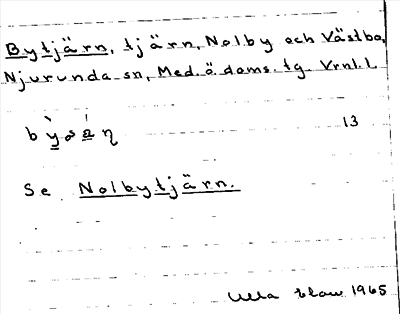 Bytjärn, tjärn, Nolby och Västbo,
Njurunda sn, Med.ö. doms. tg. Vrnl. l.
13
Se Nolbytjärn.
Ulla 1965